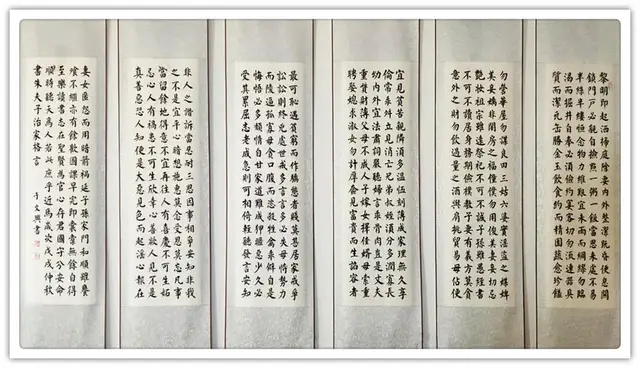 黎明即起洒掃庭除要內外整潔既昏便息關
鎖門戶必親自檢點一粥一飯當思來處不易
半絲半縷恒念物力維艱宜未雨而綢繆勿臨
渴而掘井自奉必須儉約宴客切勿流連器具
質而潔瓦缶勝金玉飲食約而精園蔬愈珍饈
勿營華屋勿謀良田三姑六婆實淫盜之媒婢
美妾嬌非閨房之福僮僕勿用俊美妻妾切忌
艷妝祖宗雖遠祭祀不可不誠子孫雖愚經書
不可不讀居身務期儉樸教子要有義方莫貪
意外之財勿飲過量之酒與肩挑貿易毋佔便
宜見貧苦親鄰須多溫恤刻薄成家理無久享
倫常乖舛立見消亡兄弟叔姪須分多潤寡長
幼內外宜法肅詞嚴聽婦言乖骨肉豈是丈夫
重資財薄父母不成人子嫁女擇佳婿毋索重
聘娶媳求淑女勿計厚奩見富貴而生諂容者
最可恥遇貧窮而作驕態者賤莫甚居家戒爭
訟訟則終凶處世戒多言言多必失毋恃勢力
而凌逼孤寡毋貪口腹而恣殺牲禽乖僻自是
悔悟必多頹惰自甘家道難成狎昵惡少久必
受其累屈志老成急則可相倚輕聽發言安知
非人之譖訴當忍耐三思因事相爭安知非我
之不是宜平心暗想施惠莫念受恩莫忘凡事
當留餘地得意不宜再往人有喜慶不可生妒
忌心人有禍患不可生欣幸心善欲人見不是
真善惡恐人知便是大惡見色而起淫心報在
妻女匿怨而用暗箭禍延子孫家門和順雖饔
飧不繼亦有餘歡國課早完即囊橐無餘自得
至樂讀書志在聖賢為官心存君國守分安命
順時聽天為人若此庶乎近焉歲次戊戌仲秋
書朱夫子治家格言 于文興書